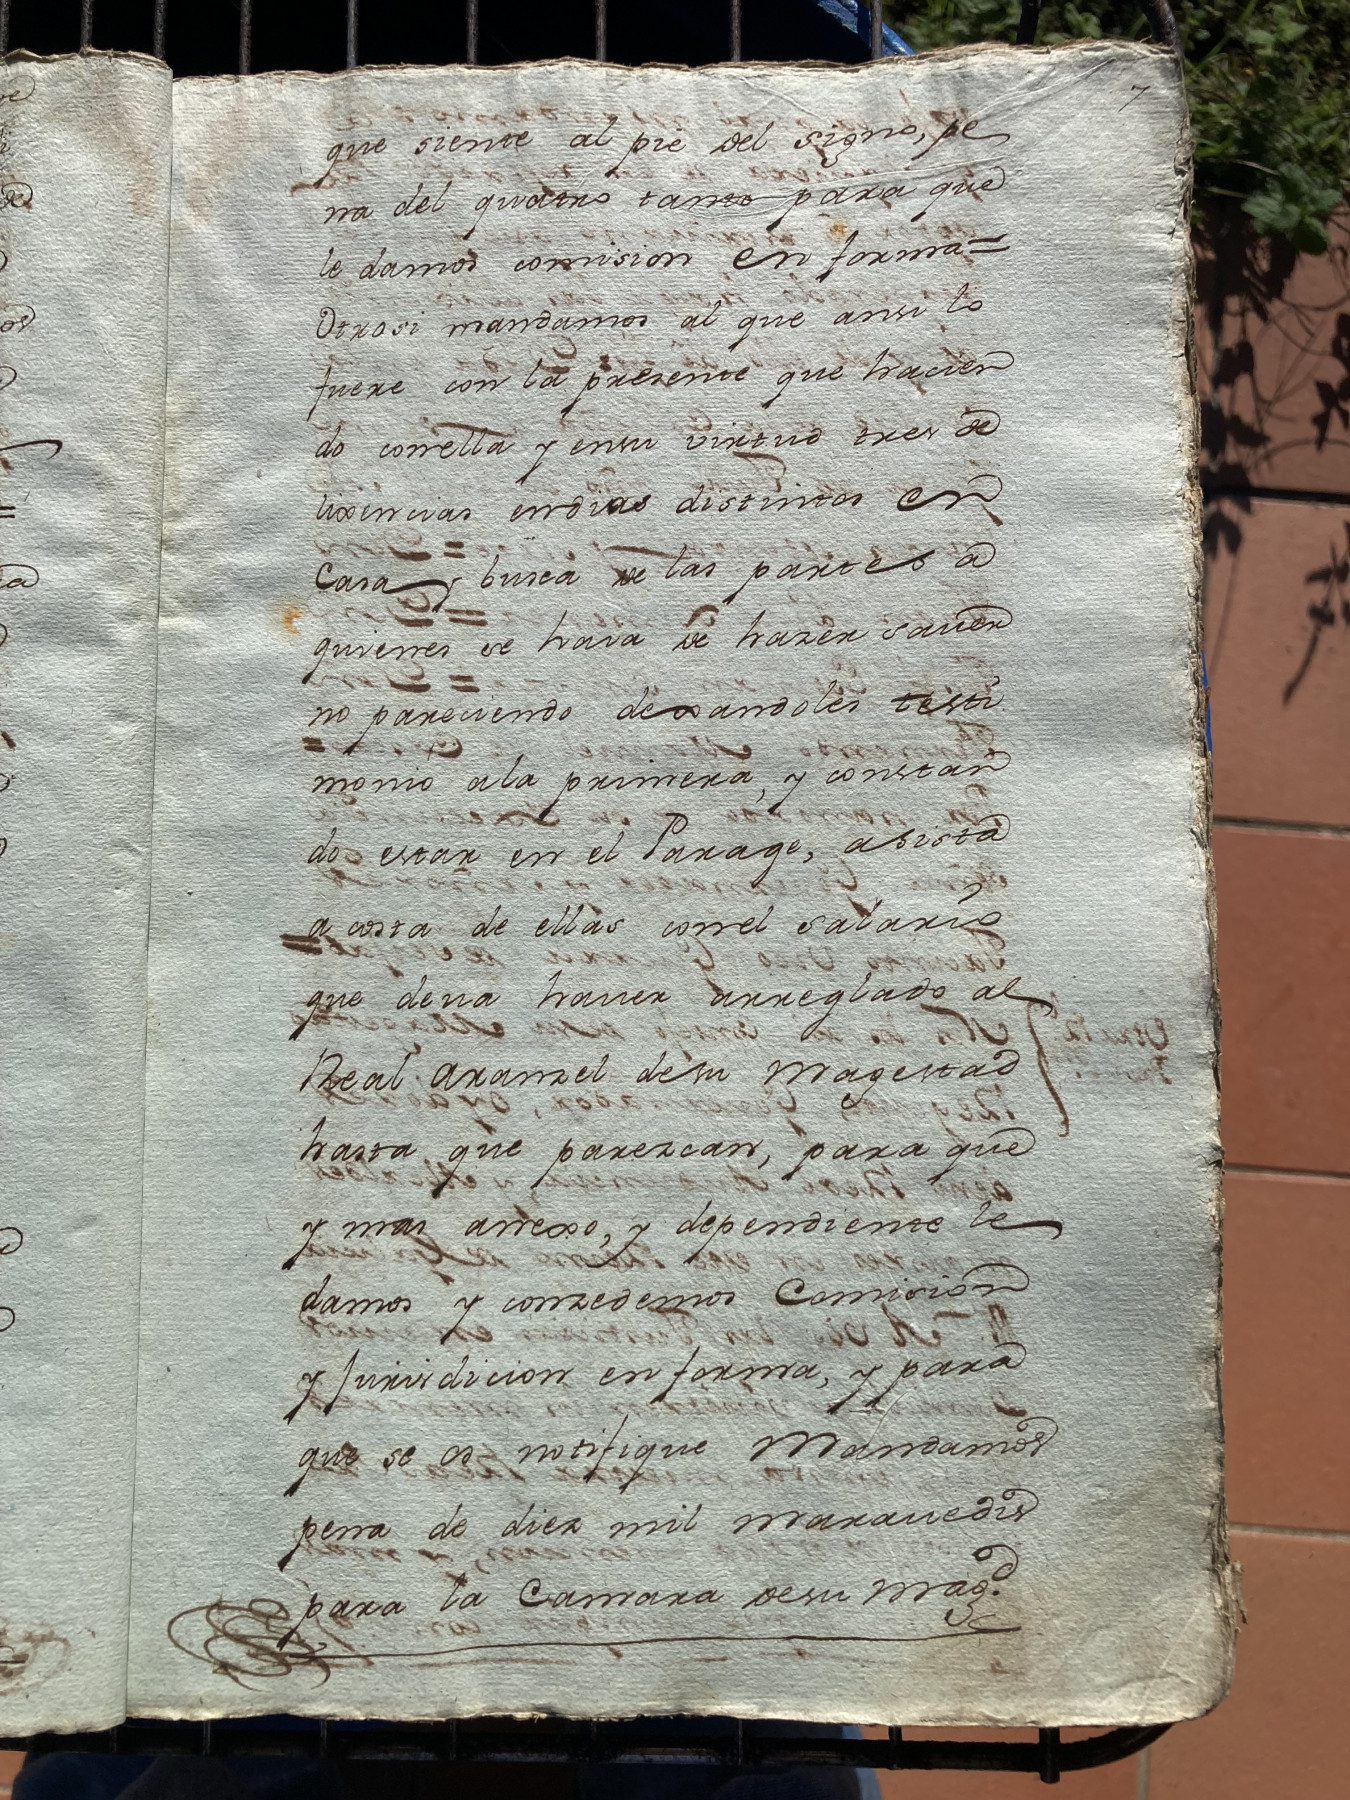 7
que siente al pie del signo, pe
na del quatro tanto para que
le damos comision en forma=
Otrosi mandamos al que ansi lo
fuere con la presente que hacien
do conella y ensu virtud tres de
lixencias endias distintos en
Casa y busca de las partes a
quienes se hava de hazer saver
no pareciendo dexandoles testi
monio ala primera, y constan
do estar en el Parage, asista
a costa de ellas conel salario
que deva haver arreglado al
Real aranzel desu Magestad
hasta que parezcan, para que
y mas anexo, y dependiente le
damos y conzedemos Comision
y Jurisdicion en forma, y para
que se os notifique Mandamos
pena de diez mil maravedis
para la Camara desu Magd.